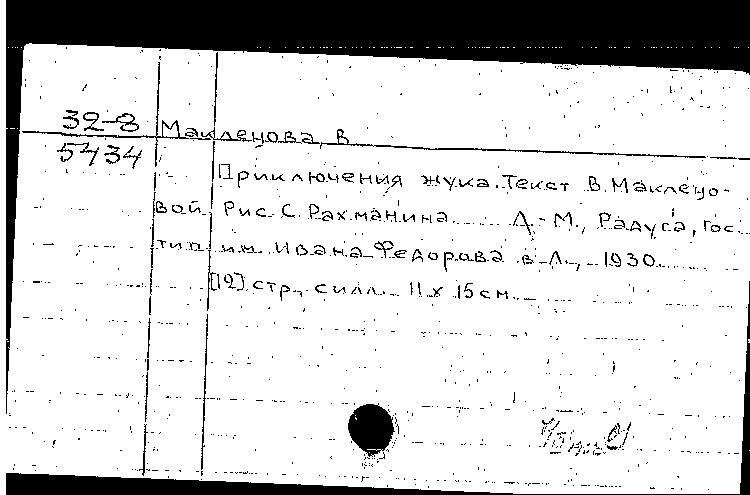 32-8 Маклецова, В
5434
Приключения жука. Текст В. Маклецо-
вой Рис. С. Рахманина Л.-М., Радуга, Гос.
тип им. Ивана Федорова в Л., 1930
[12] стр., с илл. 11 х 15 см.